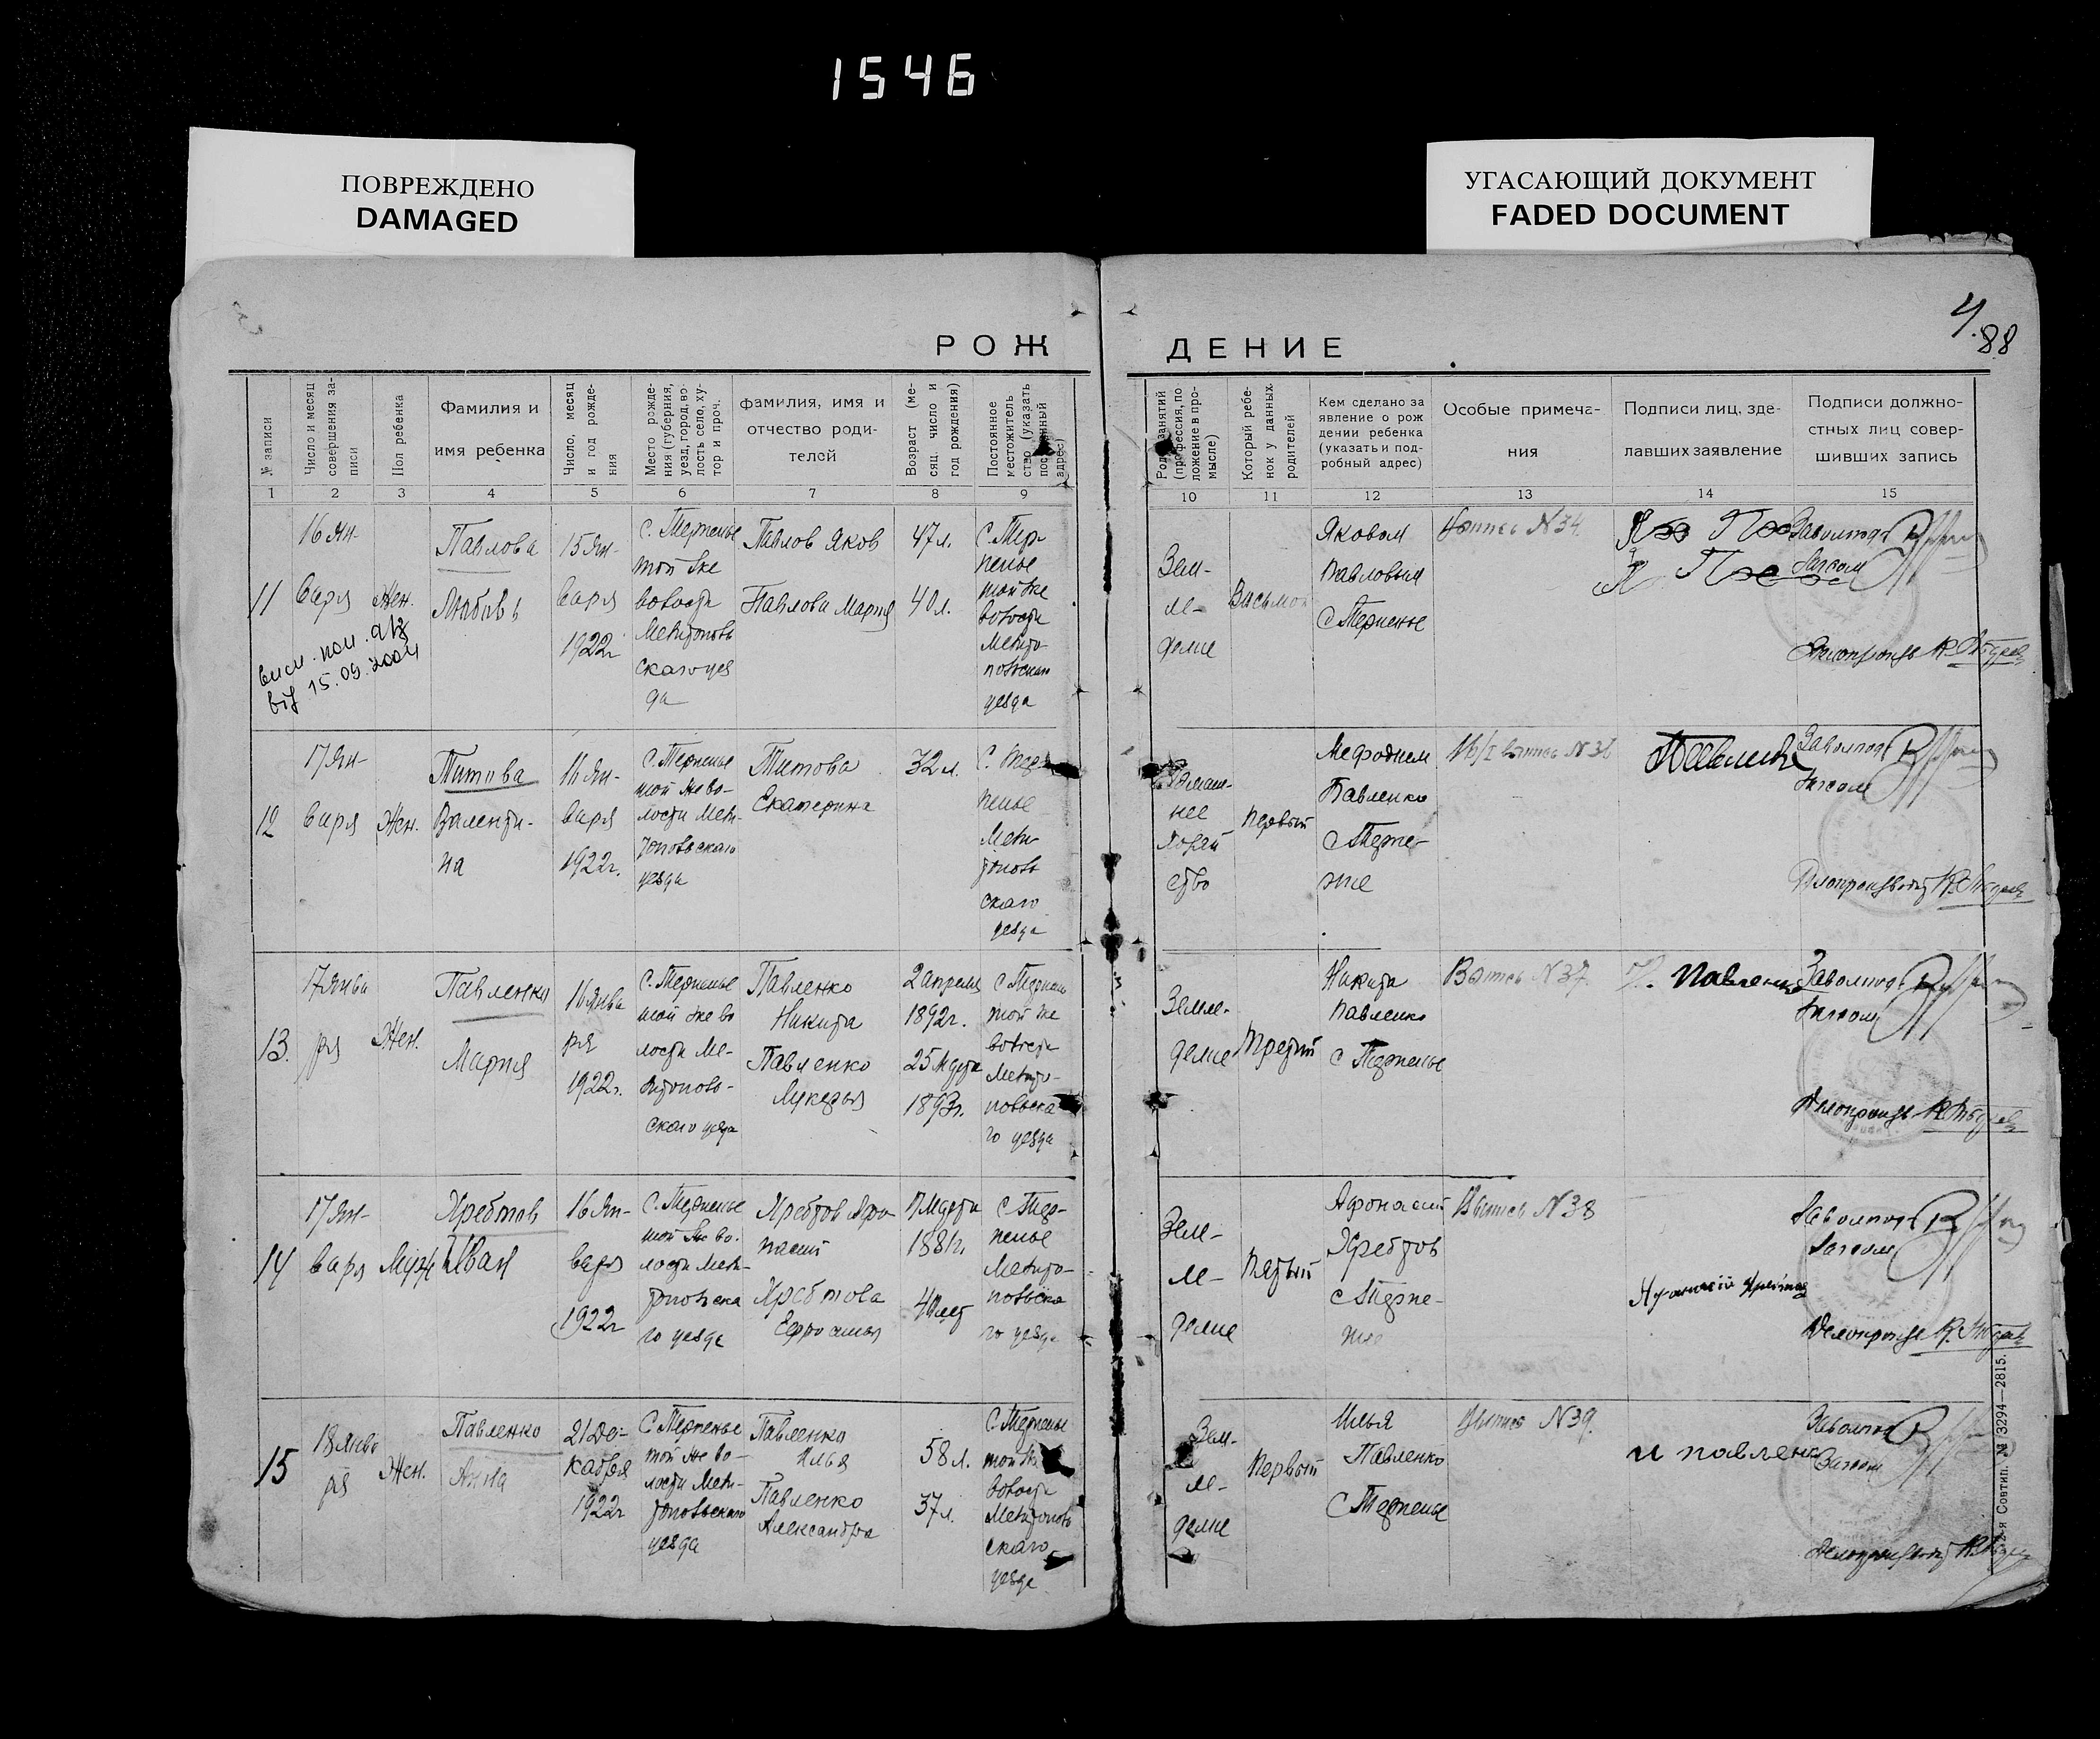 1546
ПОВРЕЖДЕНО
DAMAGED
УГАСАЮЩИЙ ДОКУМЕНТ
FADED DOCUMENT
4.
88
РОЖ
ДЕНИЕ
№ записи
Число и месяц
совершения за-
писи
Пол ребенка
Фамилия и
имя ребенка
Число, месяц
и год рожде-
ния
Место рожде-
ния (губерния,
уезд, город, во-
лость село, ху-
тор и проч.
фамилия, имя и
отчество роди-
телей
Возраст (ме-
сяц число и
год рождения)
Постоянное
местожитель
ство (указать
адрес)
Род занятий
(профессия, по
ложение в про-
мысле)
Который ребе-
нок у данных
родителей
Кем сделано за
явление о рож
дении ребенка
(указать и под-
робный адрес)
Особые примеча-
ния
Подписи лиц, сде-
лавших заявление
Подписи должно-
стных лиц совер-
шивших запись
1
2
3
4
5
6
7
8
9
10
11
12
13
14
15
11
16 Ян-
варя
Жен.
Павлова
Любовь
15 Ян-
варя
1922г
с. Терпенье
той же
волости
Мелитополь
скаго уез
да
Павлов Яков
Павлова Мария
47 л.
40 л.
с. Тер-
пенье
той же
волости
Мелито-
польскаго
уезда
Зем-
ле-
делие
Восьмой
Яковом
Павловым
с Терпенье
Выпись N 34.
Завотдел
Загсом
15.09.2004
12
17 Ян-
варя
Жен.
Титова
Валенти-
на
16 Ян-
варя
1922г.
с. Терпенье
той же во-
лости Мели-
топольскаго
уезда
Титова
Екатерина
32 л.
с. Тер-
пенье
Мели-
тополь
скаго
уезда
Домаш-
нее
хозяй
ство
Первый
Мефодием
Павленко
с Терпе-
нье
13.
17 Янва
ря
Жен.
Павленко
Мария
16 Янва
ря
1922г.
с. Терпенье
той же во
лости Ме-
литополь-
скаго уезда
Павленко
Никита
Павленко
Лукерья
2 апреля
1892г.
25 Марта
1893г.
с Терпенье
той же
волости
Мелито-
польска
го уезда
Земле-
делие
Третий
Никита
Павленко
с Терпенье
Выпись N 37.
Павленко
14
17 Ян-
варя
Муж
Хребтов
Иван
16 Ян-
варя
1922г
с. Терпенье
той же во-
лости Мели-
топольска
го уезда
Хребтов Афо
насий
Хребтова
17 Марта
1881г.
40 лет
с Тер-
пенье
Мелито-
польска
го уезда
Земле-
ле-
делие
Пятый
Афонасий
Хребтов
с Терпе-
нье
Выпись N 38
15
18 Янва
ря
Жен.
Павленко
Анна
21 Де-
кабря
1922г
с Терпенье
той же во-
лости Мели-
топольскаго
уезда
Павленко
Илья
Павленко
Александра
58 л.
37 л.
с. Терпенье
той же
волости
Мелитополь
скаго
уезда
Зем-
ле-
делие
Первый
Илья
Павленко
с Терпенье
Выпись N 39.
и павленко
2-я Совтип. № 3294—2815.